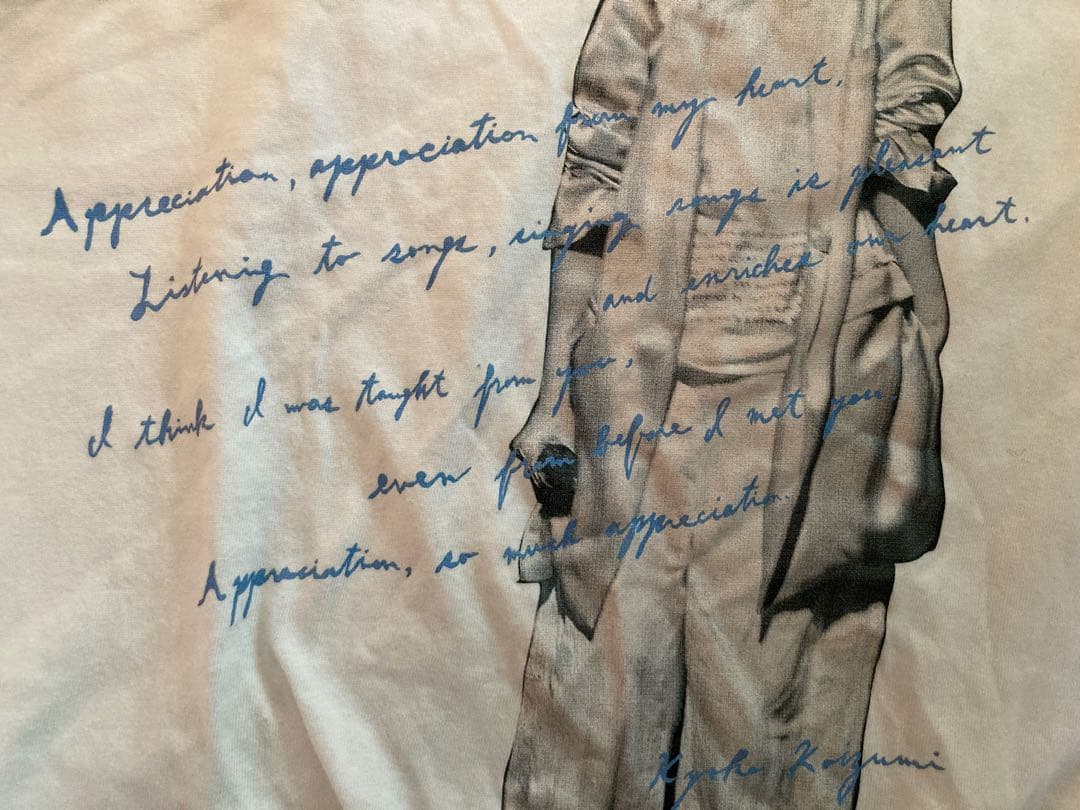 Appreciation, appreciation from my heart.
Listening to songs, singing songs is pleasant
and enriches our heart.
I think I was taught from you,
even from before I met you.
Appreciation, so much appreciation.
Kyoko Koizumi